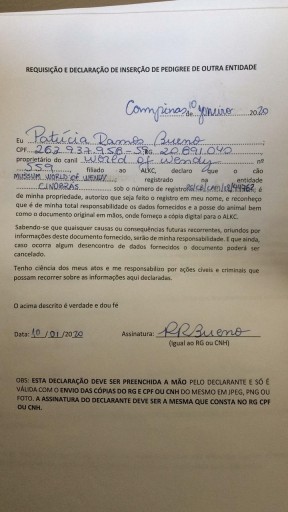 REQUISIÇÃO E DECLARAÇÃO DE INSERÇÃO DE PEDIGREE DE OUTRA ENTIDADE
Campinas, 10 de janeiro 2020
Eu Patrícia Ramos Bueno,
CPF. 262.937.958-59 RG 20.691.040
proprietário do canil World of Wendy nº
559 filiado ao ALKC, declaro que o cão
MUSSUM WORLD OF WENDY registrado na entidade
CINOBRAS sob o número de registro é
de minha propriedade, autorizo que seja feito o registro em meu nome, e reconheço
que é de minha total responsabilidade os dados fornecidos e a posse do animal bem
como o documento original em mãos, onde forneço a cópia digital para o ALKC.
Sabendo-se que quaisquer causas ou consequências futuras recorrentes, oriundos por
informações deste documento fornecido, serão de minha responsabilidade. E que ainda,
caso ocorra algum desencontro de dados fornecidos o documento poderá ser
cancelado.
Tenho ciência dos meus atos e me responsabilizo por ações cíveis e criminais que
possam recorrer sobre as informações aqui declaradas.
O acima descrito é verdade e dou fé
Data: 10/01/2020 Assinatura: PRBueno
(Igual ao RG ou CNH)
OBS: ESTA DECLARAÇÃO DEVE SER PREENCHIDA A MÃO PELO DECLARANTE E SÓ É
VÁLIDA COM O ENVIO DAS CÓPIAS DO RG E CPF OU CNH DO MESMO EM JPEG, PNG OU
FOTO. A ASSINATURA DO DECLARANTE DEVE SER A MESMA QUE CONSTA NO RG CPF
OU CNH.